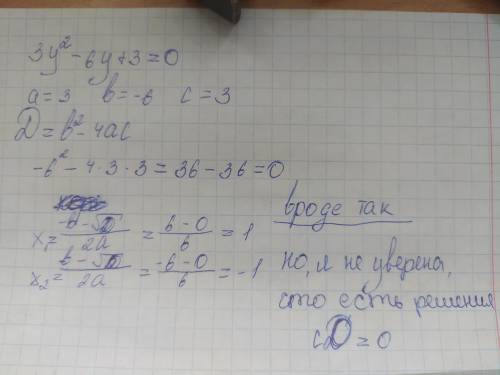 3y² - 6y + 3 = 0
a = 3 b = -6 c = 3
D = b² - 4ac
-6² - 4 · 3 · 3 = 36 - 36 = 0
x₁ = (-b - √D)/2a = (6 - 0)/6 = 1
x₂ = (b - √D)/2a = (-6 - 0)/6 = -1
вроде так
Но, я не уверена,
что есть решения
с D = 0